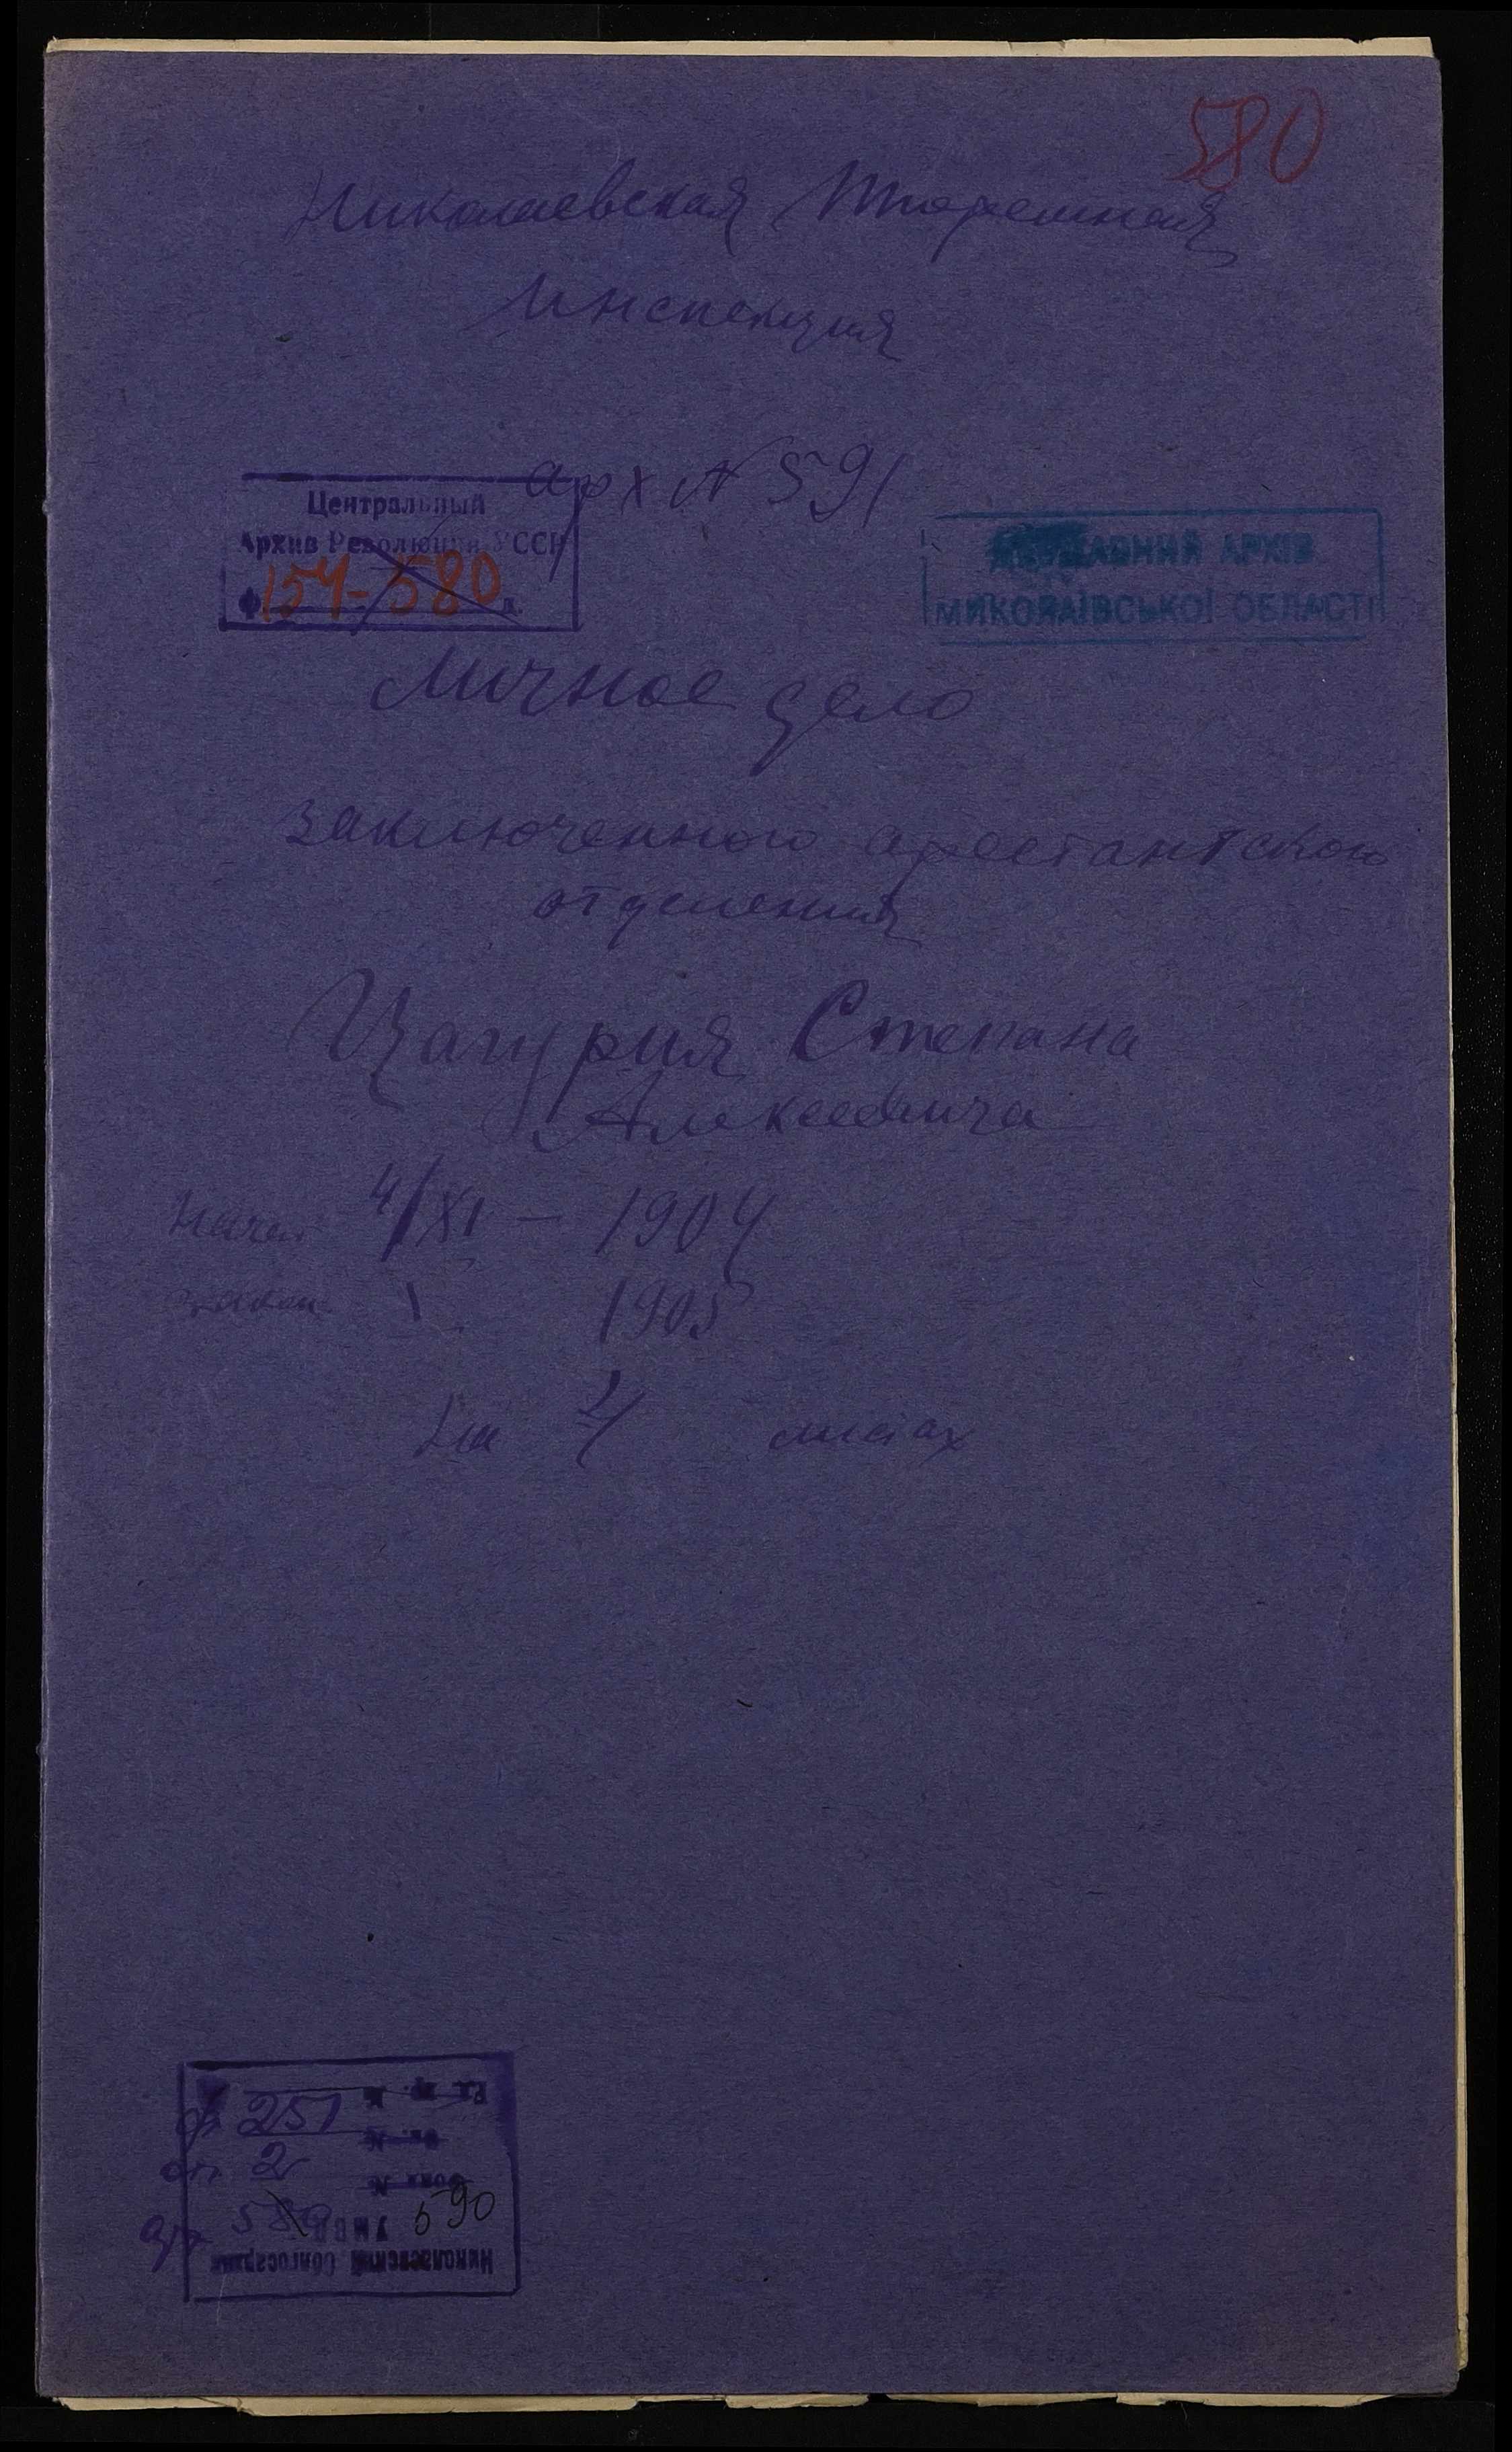 580
Николаевская Тюремная
Инспекция
арх № 591
Центральный
Архив Революции УССР
Ф 154-580 д.
ДЕРЖАВНИЙ АРХІВ
МИКОЛАЇВСЬКОЇ ОБЛАСТІ
Личное дело
заключенного арестантского
отделения
Цагурия Степана
Алексеевича
Начат 4/XI - 1904
1905
листах
ф 251
оп 2
580
590
Николаевский Облгосархив
УМВД
Фонд №
Оп. №
Ед. хр. №